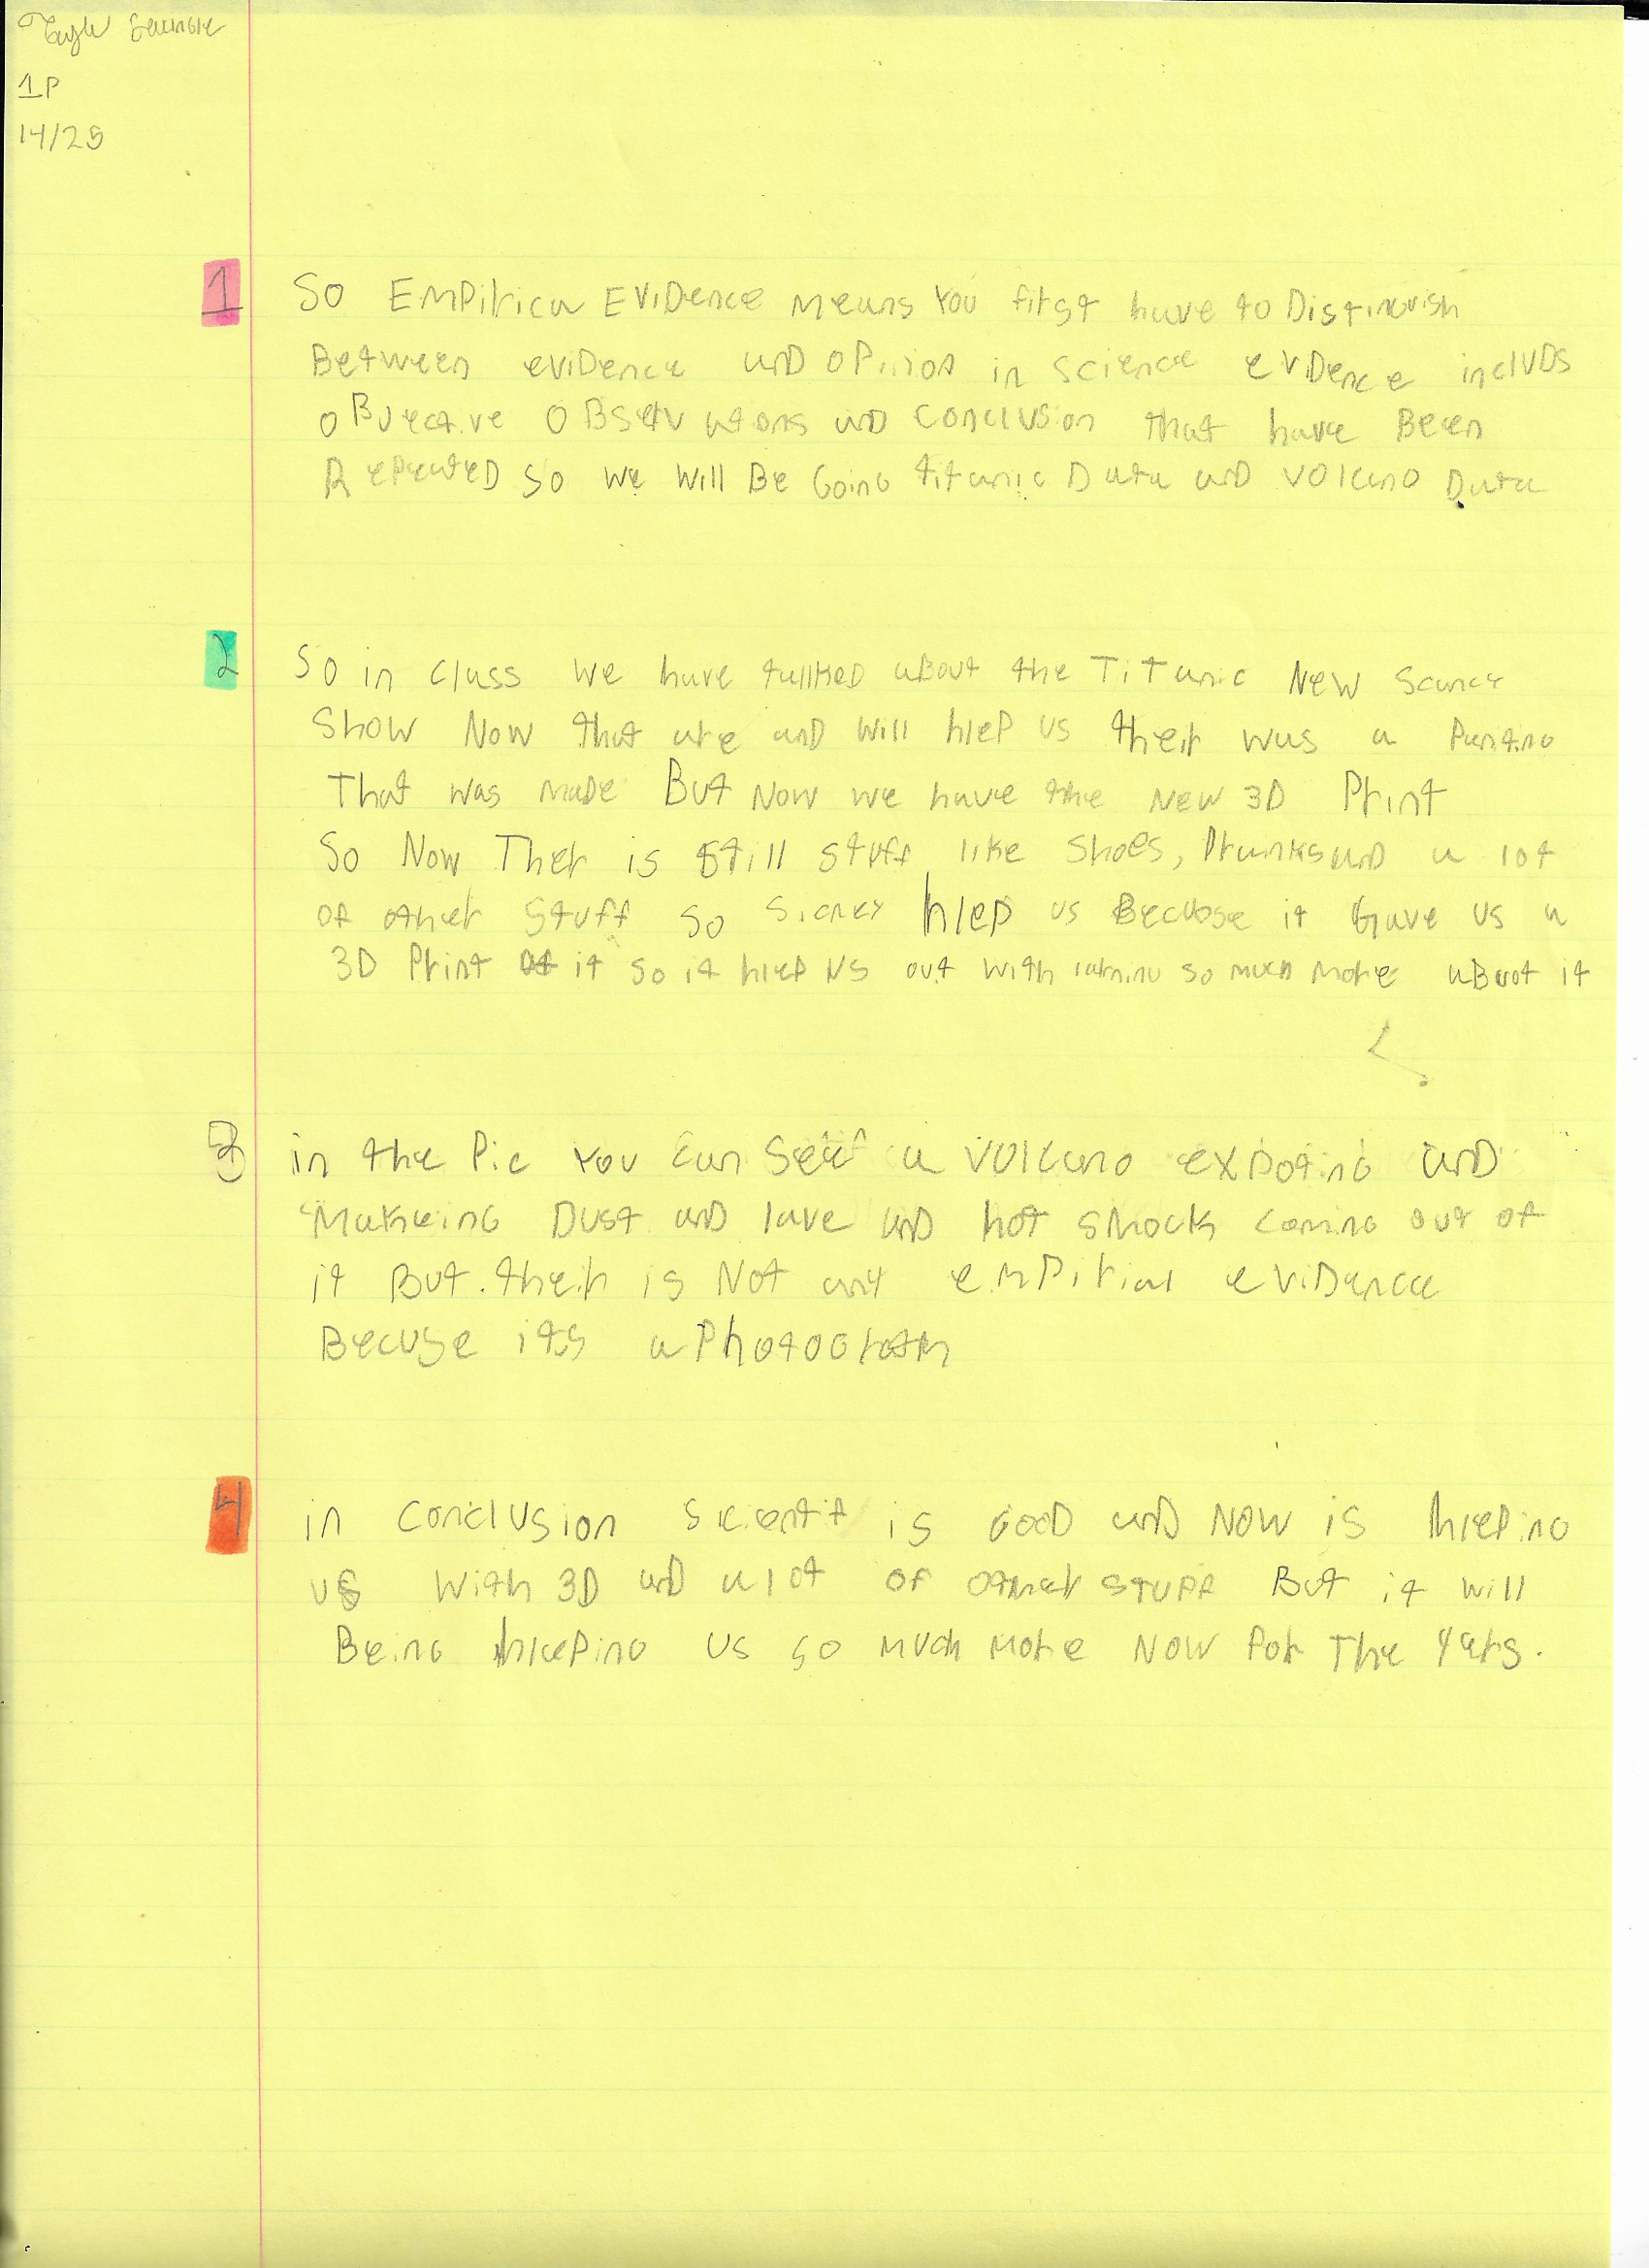 1P
14/25
1 So EMPiricu EViDence Means You first have to Distinguish
Between eviDence anD oPinion in science eviDence incluDs
oBjective oBservations anD conclusion that have Been
RepeateD so we will Be Going titanic Data anD volcano Data
2 So in class we have tallkeD aBout the TiTanic New
Show Now that are anD will hlep us their was a
That was MaDe But Now we have the New 3D Print
So Now Ther is still stuff like shoes, anD a lot
of other stuff so hlep us Becuose it Gave us a
3D Print it so it hlep us out with so much more aBuot it
3 in the Pic You can see a volcano anD
Makeing Dust anD lave anD hot coming out of
it But their is Not any eMPirial eviDence
Becuse its a
4 in conclusion is GooD anD Now is hleping
us with 3D anD a lot of other stuff But it will
Being hleping us so much more Now for The yers.